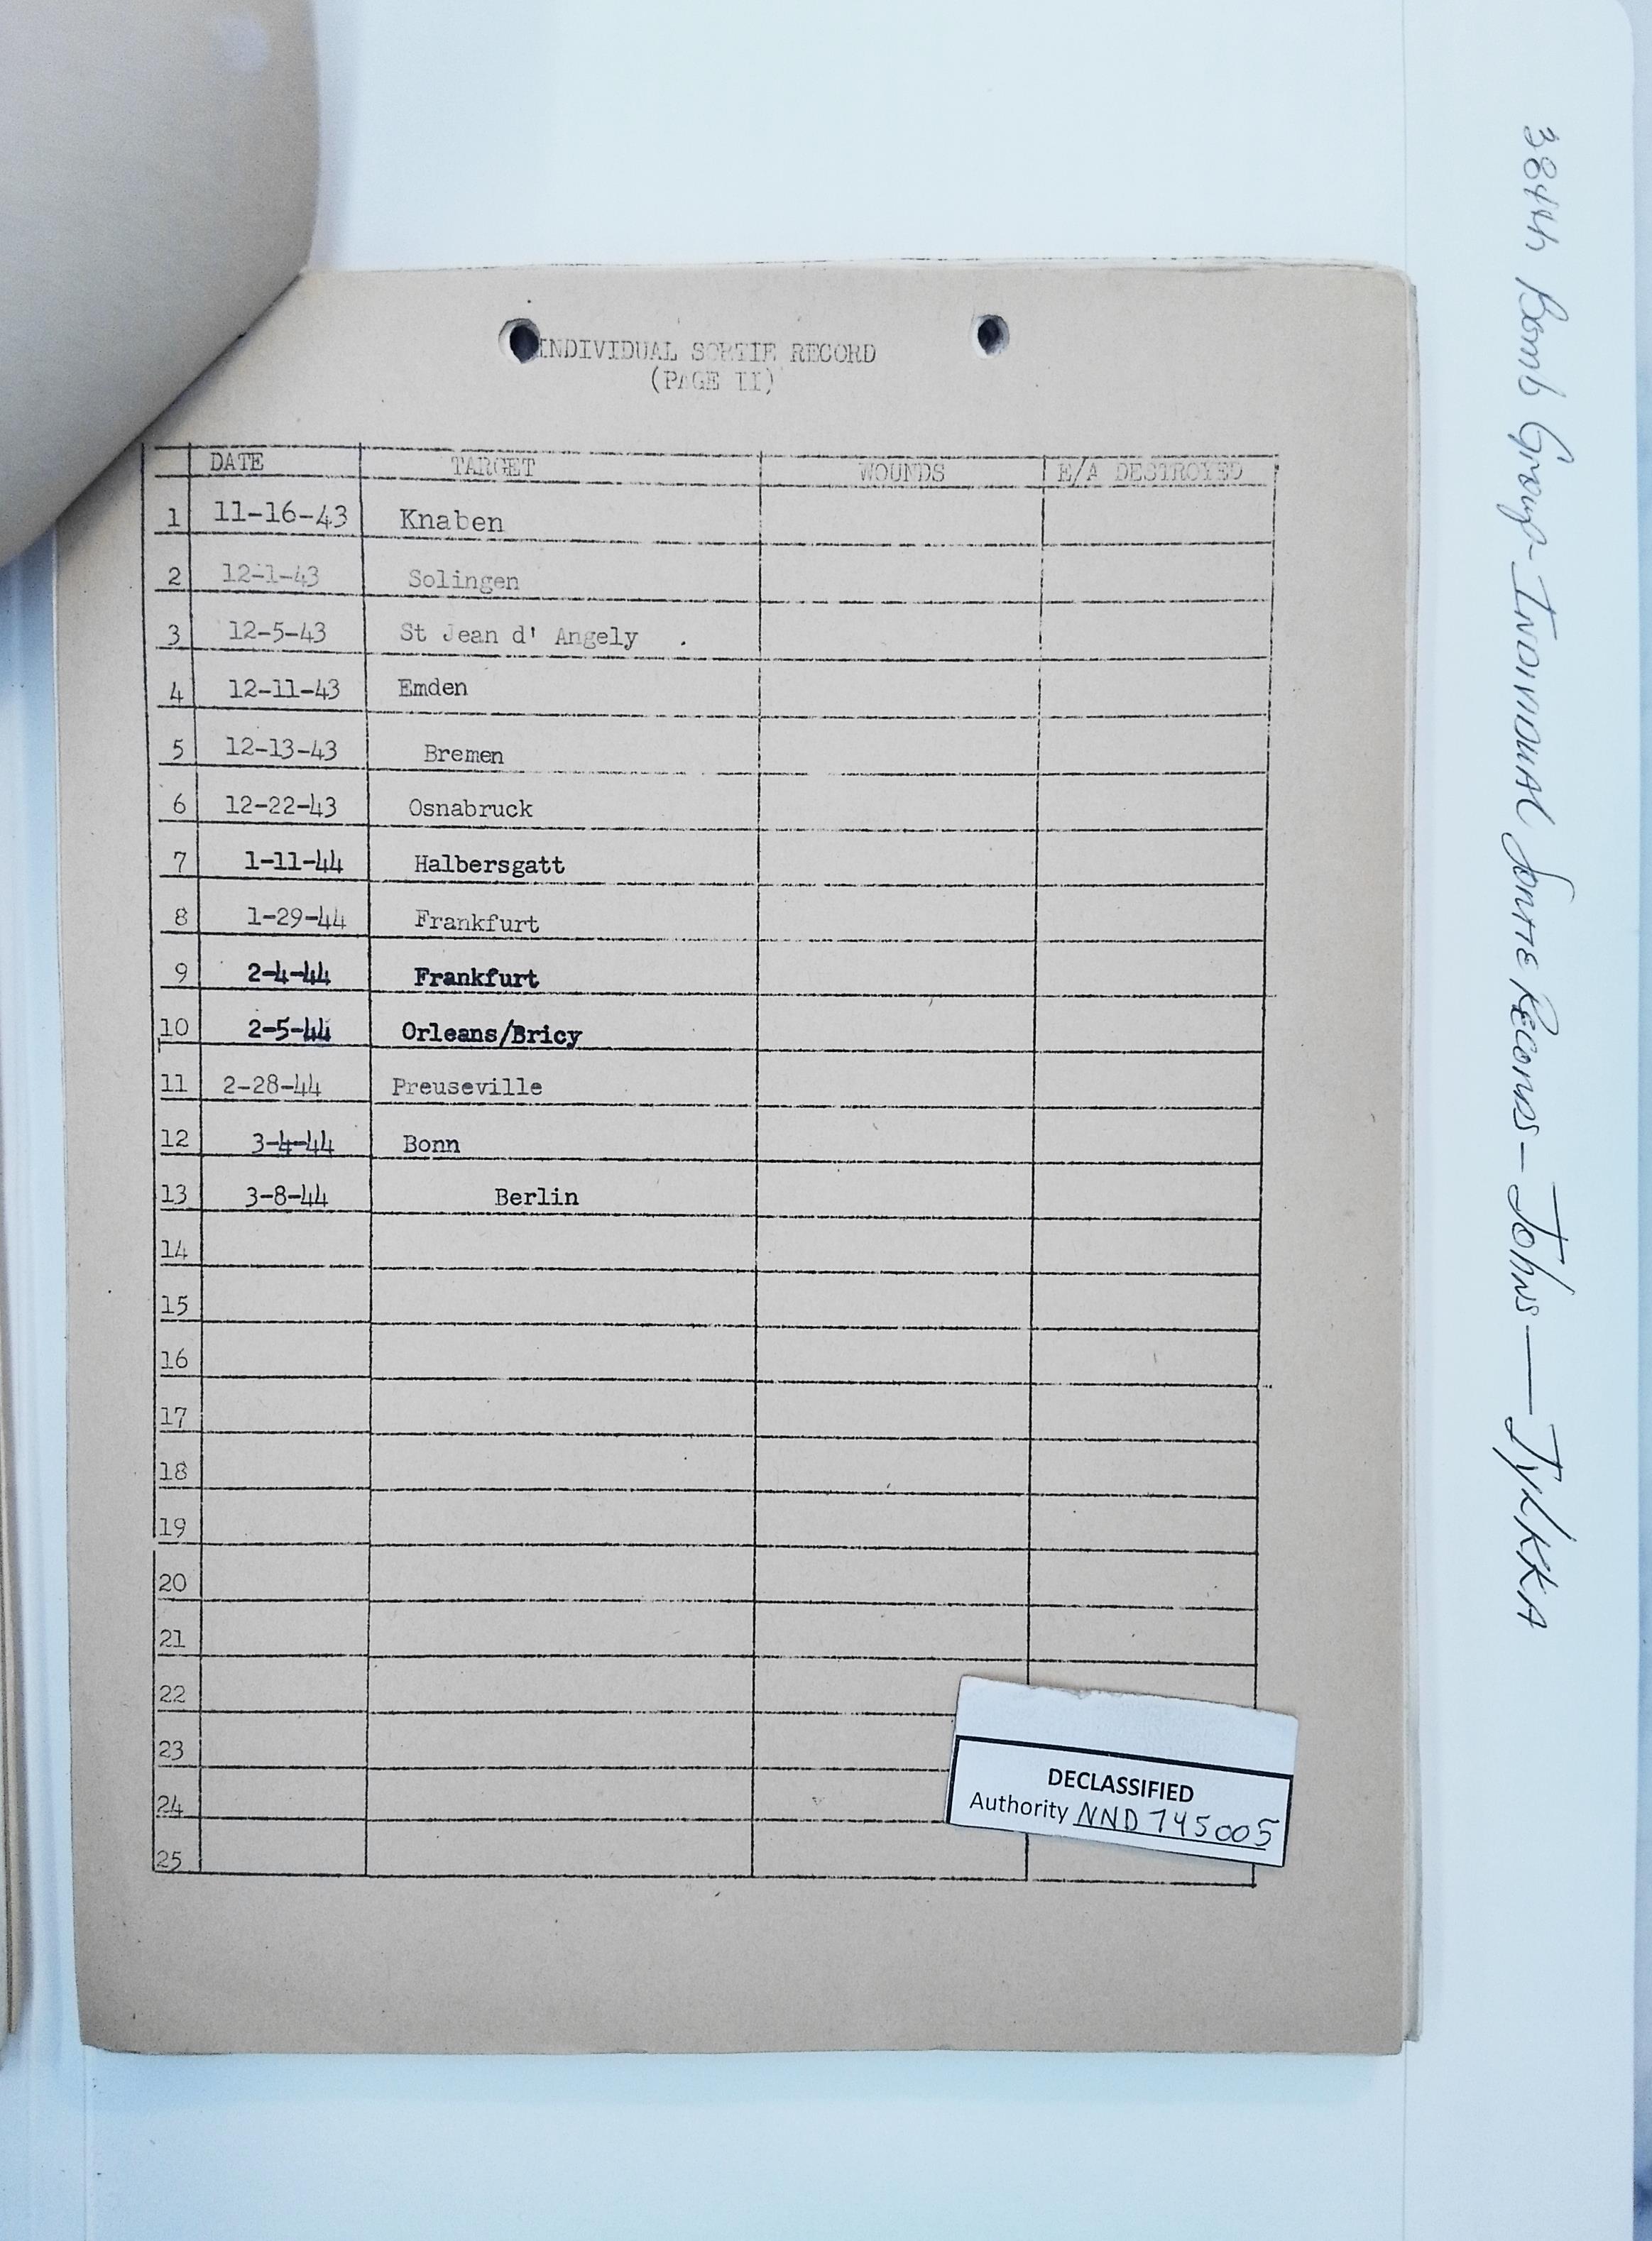 INDIVIDUAL SORTIE RECORD
(PAGE II)
DATE TARGET WOUNDS E/A DESTROYED
1 11-16-43 Knaben
2 12-1-43 Solingen
3 12-5-43 St Jean d' Angely .
4 12-11-43 Emden
5 12-13-43 Bremen
6 12-22-43 Osnabruck
7 1-11-44 Halbersgatt
8 1-29-44 Frankfurt
9 2-4-44 Frankfurt
10 2-5-44 Orleans/Bricy
11 2-28-44 Preuseville
12 3-4-44 Bonn
13 3-8-44 Berlin
14
15
16
17
18
19
20
21
22
23
24
25
DECLASSIFIED
Authority NND 745005
384th Bomb Group - INDIVIDUAL Sortie Records - Johns - Jylkka